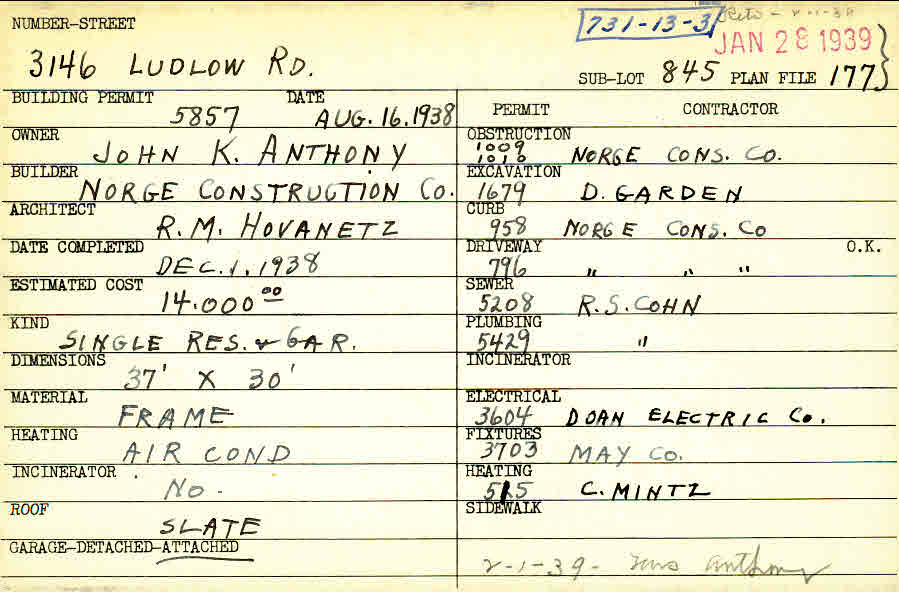 NUMBER-STREET
731-13-3
2-1-39
JAN 28 1939
3146 LUDLOW RD.
SUB-LOT 845 PLAN FILE 177
BUILDING PERMIT DATE
5857 AUG. 16. 1938
OWNER
JOHN K. ANTHONY
BUILDER
NORGE CONSTRUCTION CO.
ARCHITECT
R.M. HOVANETZ
DATE COMPLETED
DEC. 1. 1938
ESTIMATED COST
14.000 00
KIND
SINGLE RES. & GAR.
DIMENSIONS
37' X 30'
MATERIAL
FRAME
HEATING
AIR COND
INCINERATOR
NO.
ROOF
SLATE
GARAGE-DETACHED-ATTACHED
PERMIT CONTRACTOR
OBSTRUCTION
1009
1010 NORGE CONS. CO.
EXCAVATION
1679 D. GARDEN
CURB
958 NORGE CONS. CO
DRIVEWAY O.K.
796 " " "
SEWER
5208 R.S. COHN
PLUMBING
5429 "
INCINERATOR
ELECTRICAL
3604 DOAN ELECTRIC CO.
FIXTURES
3703 MAY CO.
HEATING
515 C. MINTZ
SIDEWALK
2-1-39- Anthony